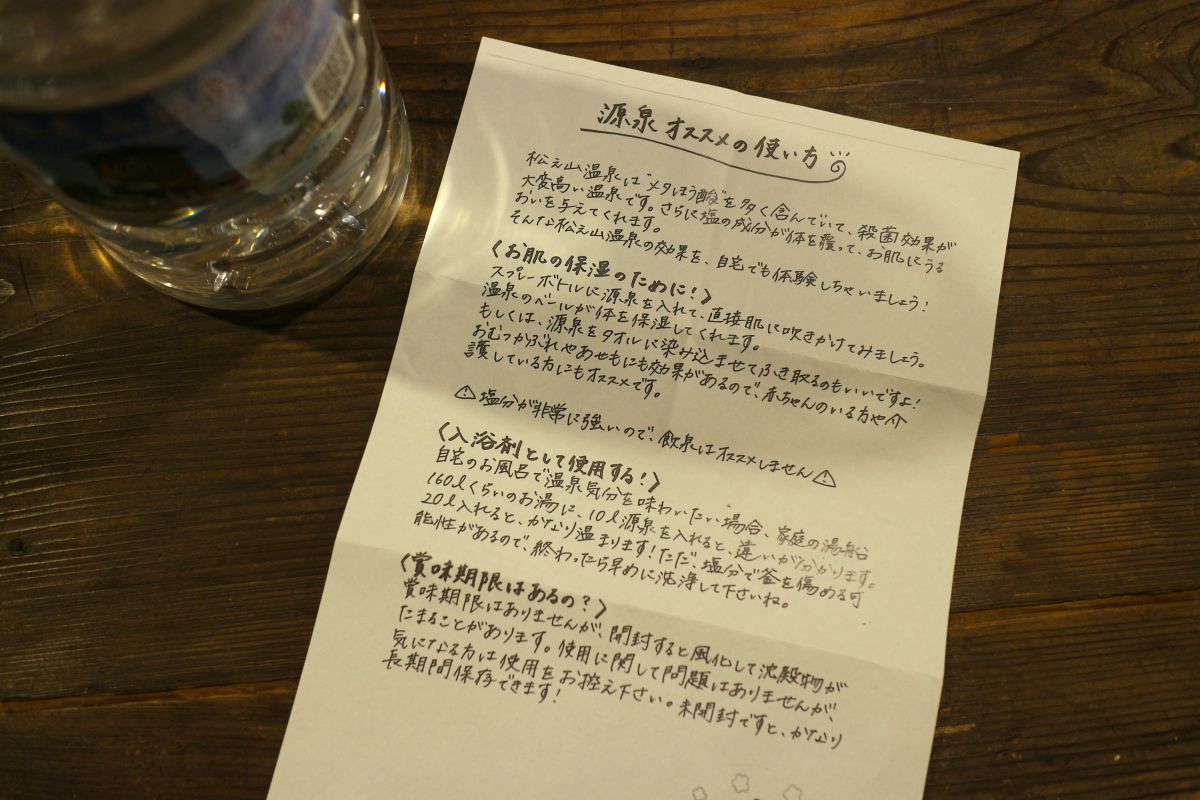 源泉 オススメの使い方
松之山温泉は"メタほう酸"を多く含んでいて、殺菌効果が
大変高い温泉です。さらに塩の成分が体を覆って、お肌にうる
おいを与えてくれます。
そんな松之山温泉の効果を、自宅でも体験しちゃいましょう!
〈お肌の保湿のために!〉
スプレーボトルに源泉を入れて、直接肌に吹きかけてみましょう。
温泉のベールが体を保湿してくれます。
もしくは、源泉をタオルに染み込ませてふき取るのもいいですよ!
おむつかぶれやあせもにも効果があるので、赤ちゃんのいる方や介
護している方にもオススメです。
⚠塩分が非常に強いので、飲泉はオススメしません⚠
〈入浴剤として使用する!〉
自宅のお風呂で温泉気分を味わいたい場合、家庭の湯船
160ℓくらいのお湯に、10ℓ源泉を入れると、違いが分かります。
20ℓ入れると、かなり温まります!ただ、塩分で釜を傷める可
能性があるので、終わったら早めに洗浄して下さいね。
〈賞味期限はあるの?〉
賞味期限はありませんが、開封すると風化して沈殿物が
たまることがあります。使用に関して問題はありませんが、
気になる方は使用をお控え下さい。未開封ですと、かなり
長期間保存できます!